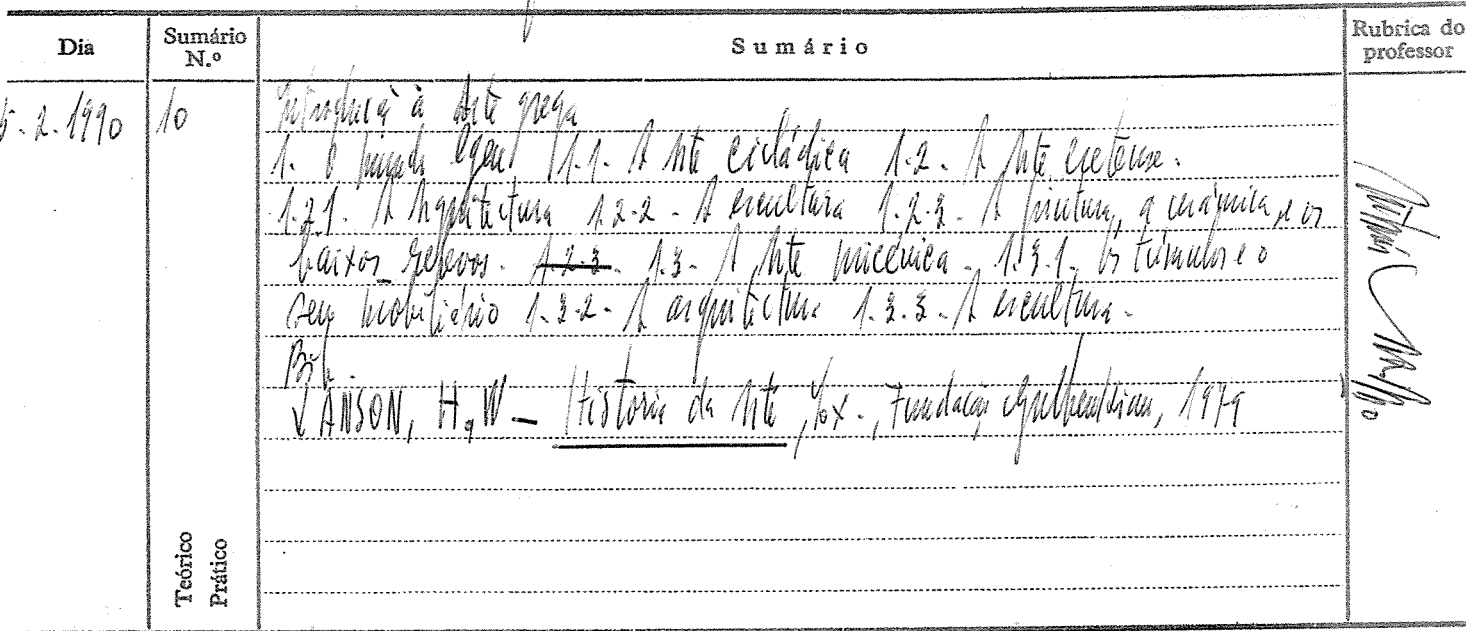 Dia
Sumário N.º
Sumário
Rubrica do professor
5-2-1990
10
Introdução à Arte grega
1. O mundo Egeu 1.1. A Arte cicládica 1.2. A Arte cretense.
1.2.1. A Arquitectura 1.2.2. A escultura 1.2.3. A pintura, a cerâmica, e os
baixos relevos. 1.2.3. 1.3. A Arte micénica. 1.3.1. Os túmulos e o
seu mobiliário 1.3.2. A arquitectura 1.3.3. A escultura.
Bib.
JANSON, H. W - História da Arte, Lx., Fundação Gulbenkian, 1979
Teórico
Prático